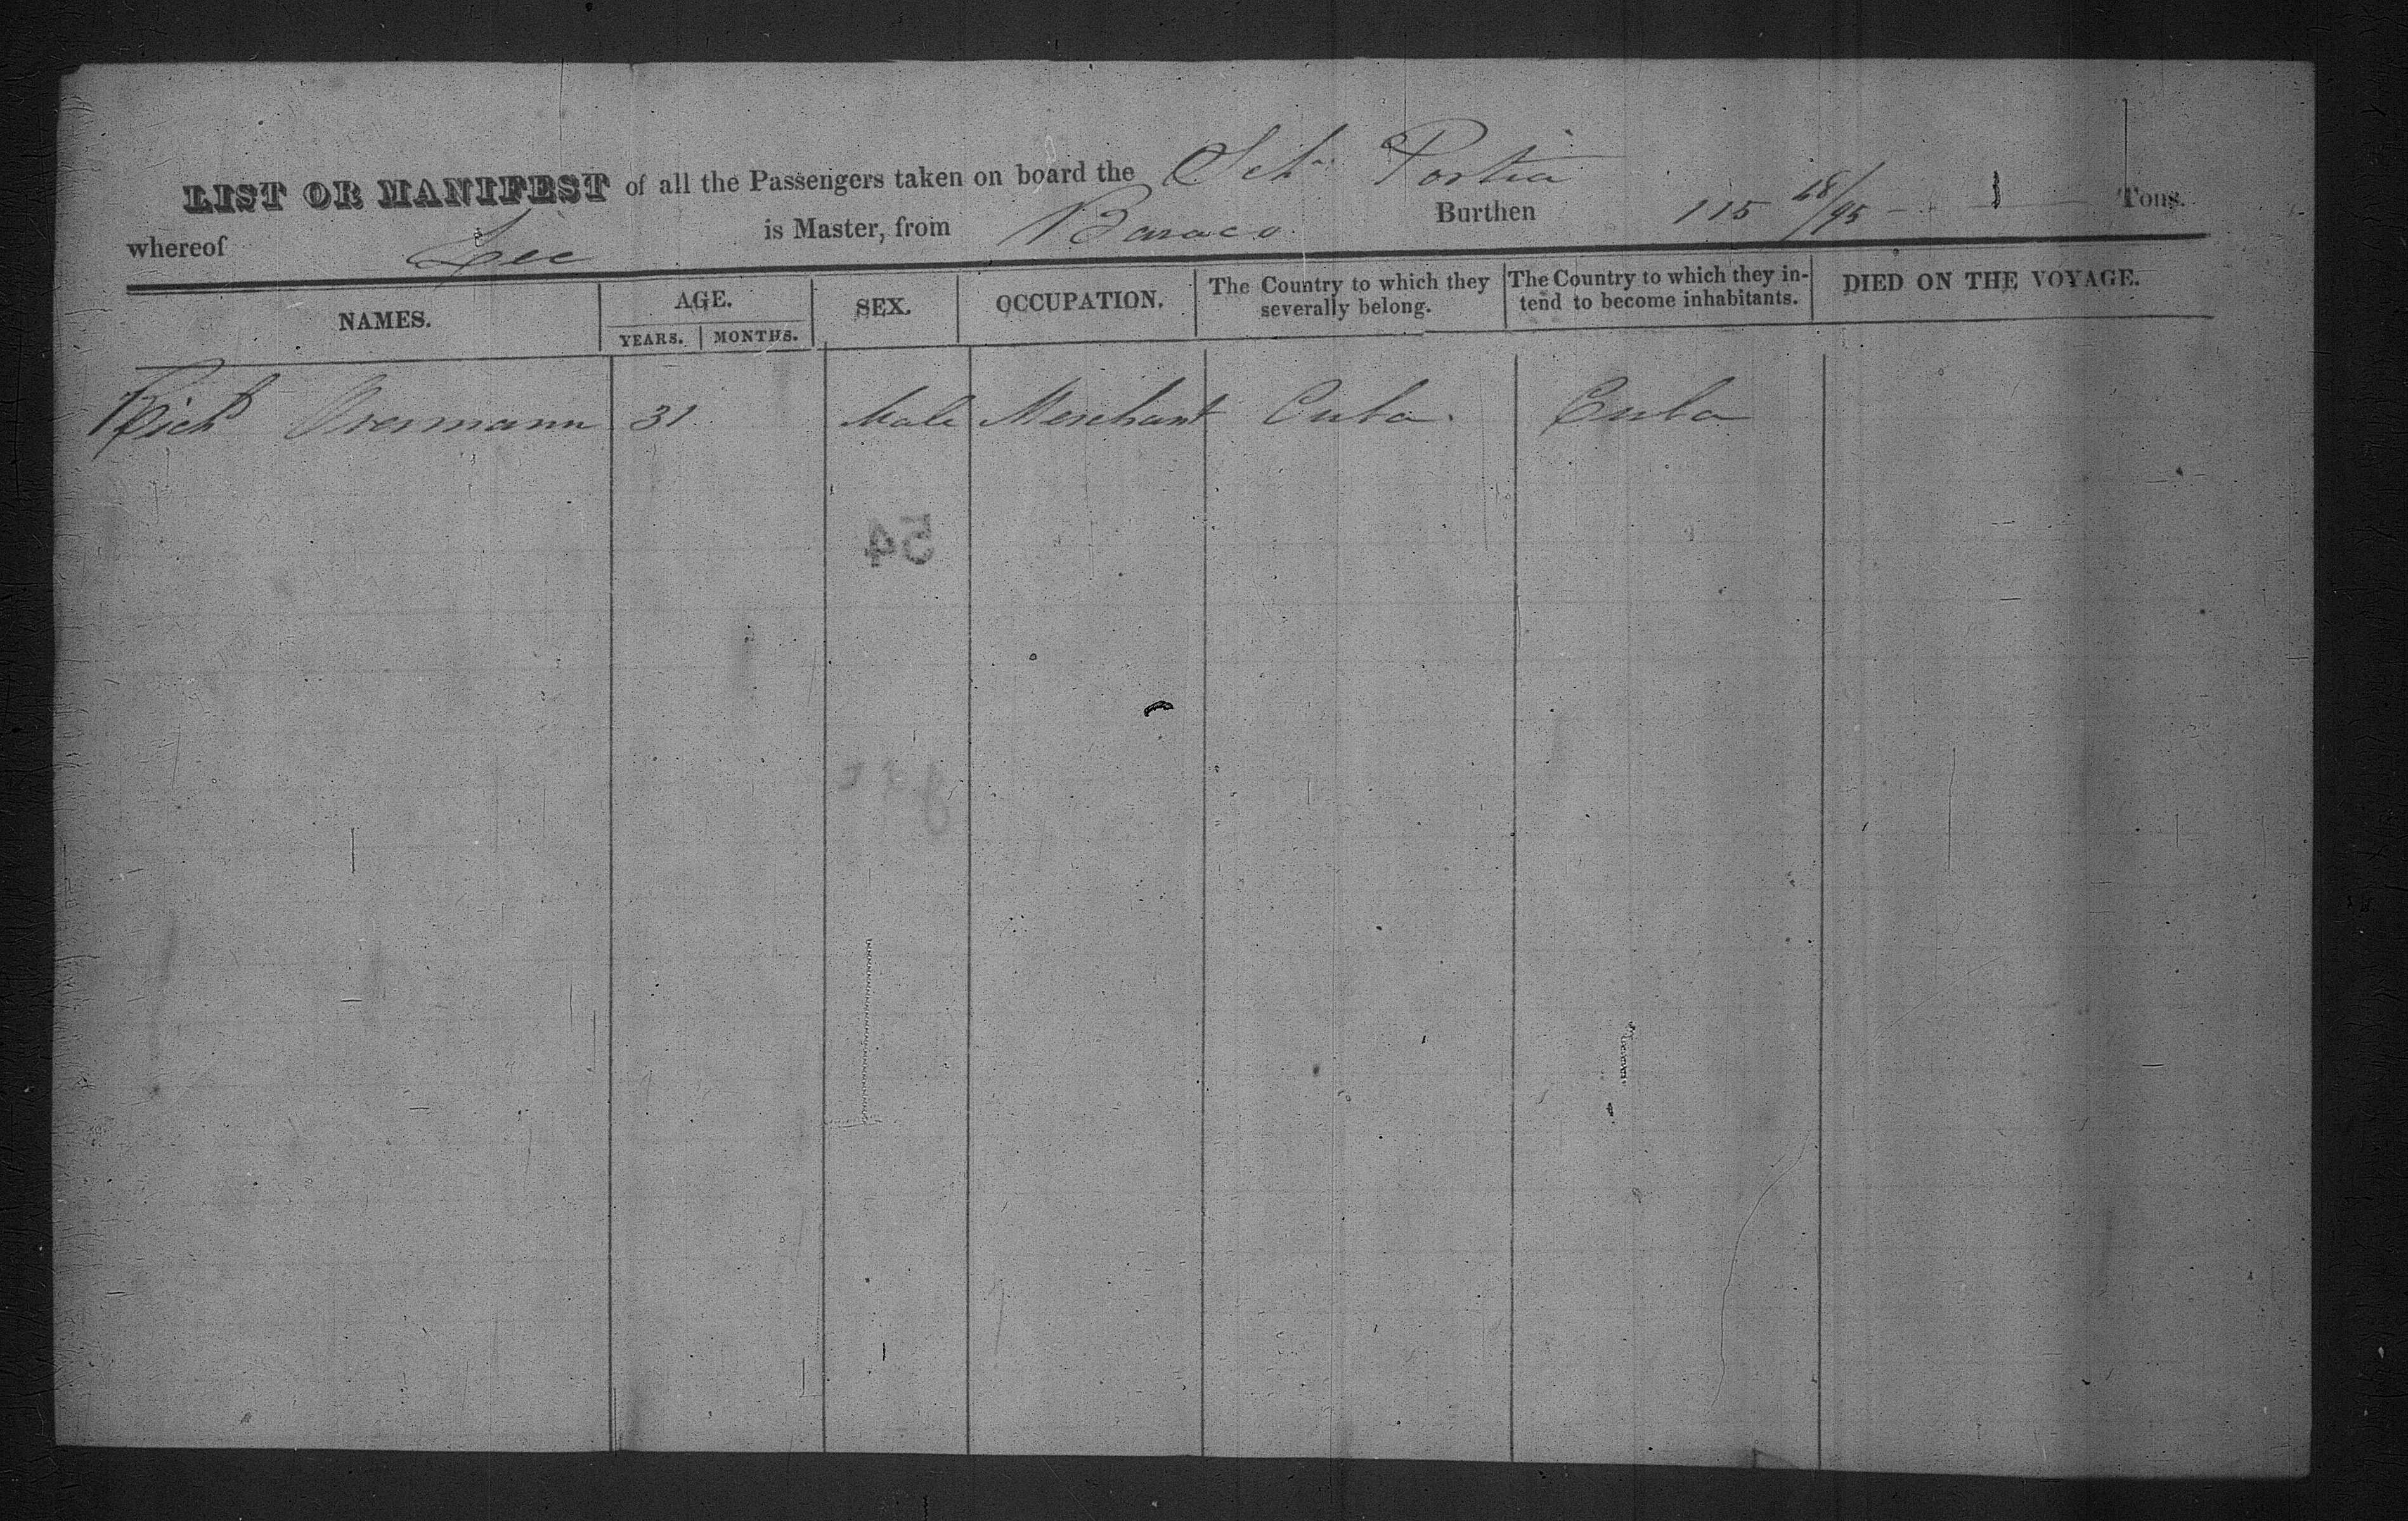 LIST OR MANIFEST of all the Passengers taken on board the Schr Portia
whereof Lee is Master, from Baraco Burthen 115 18/95 Tons.
NAMES. AGE. YEARS. MONTHS. SEX. OCCUPATION. The Country to which they severally belong. The Country to which they intend to become inhabitants. DIED ON THE VOYAGE.
Richd 31 Male Merchant Cuba. Cuba
54